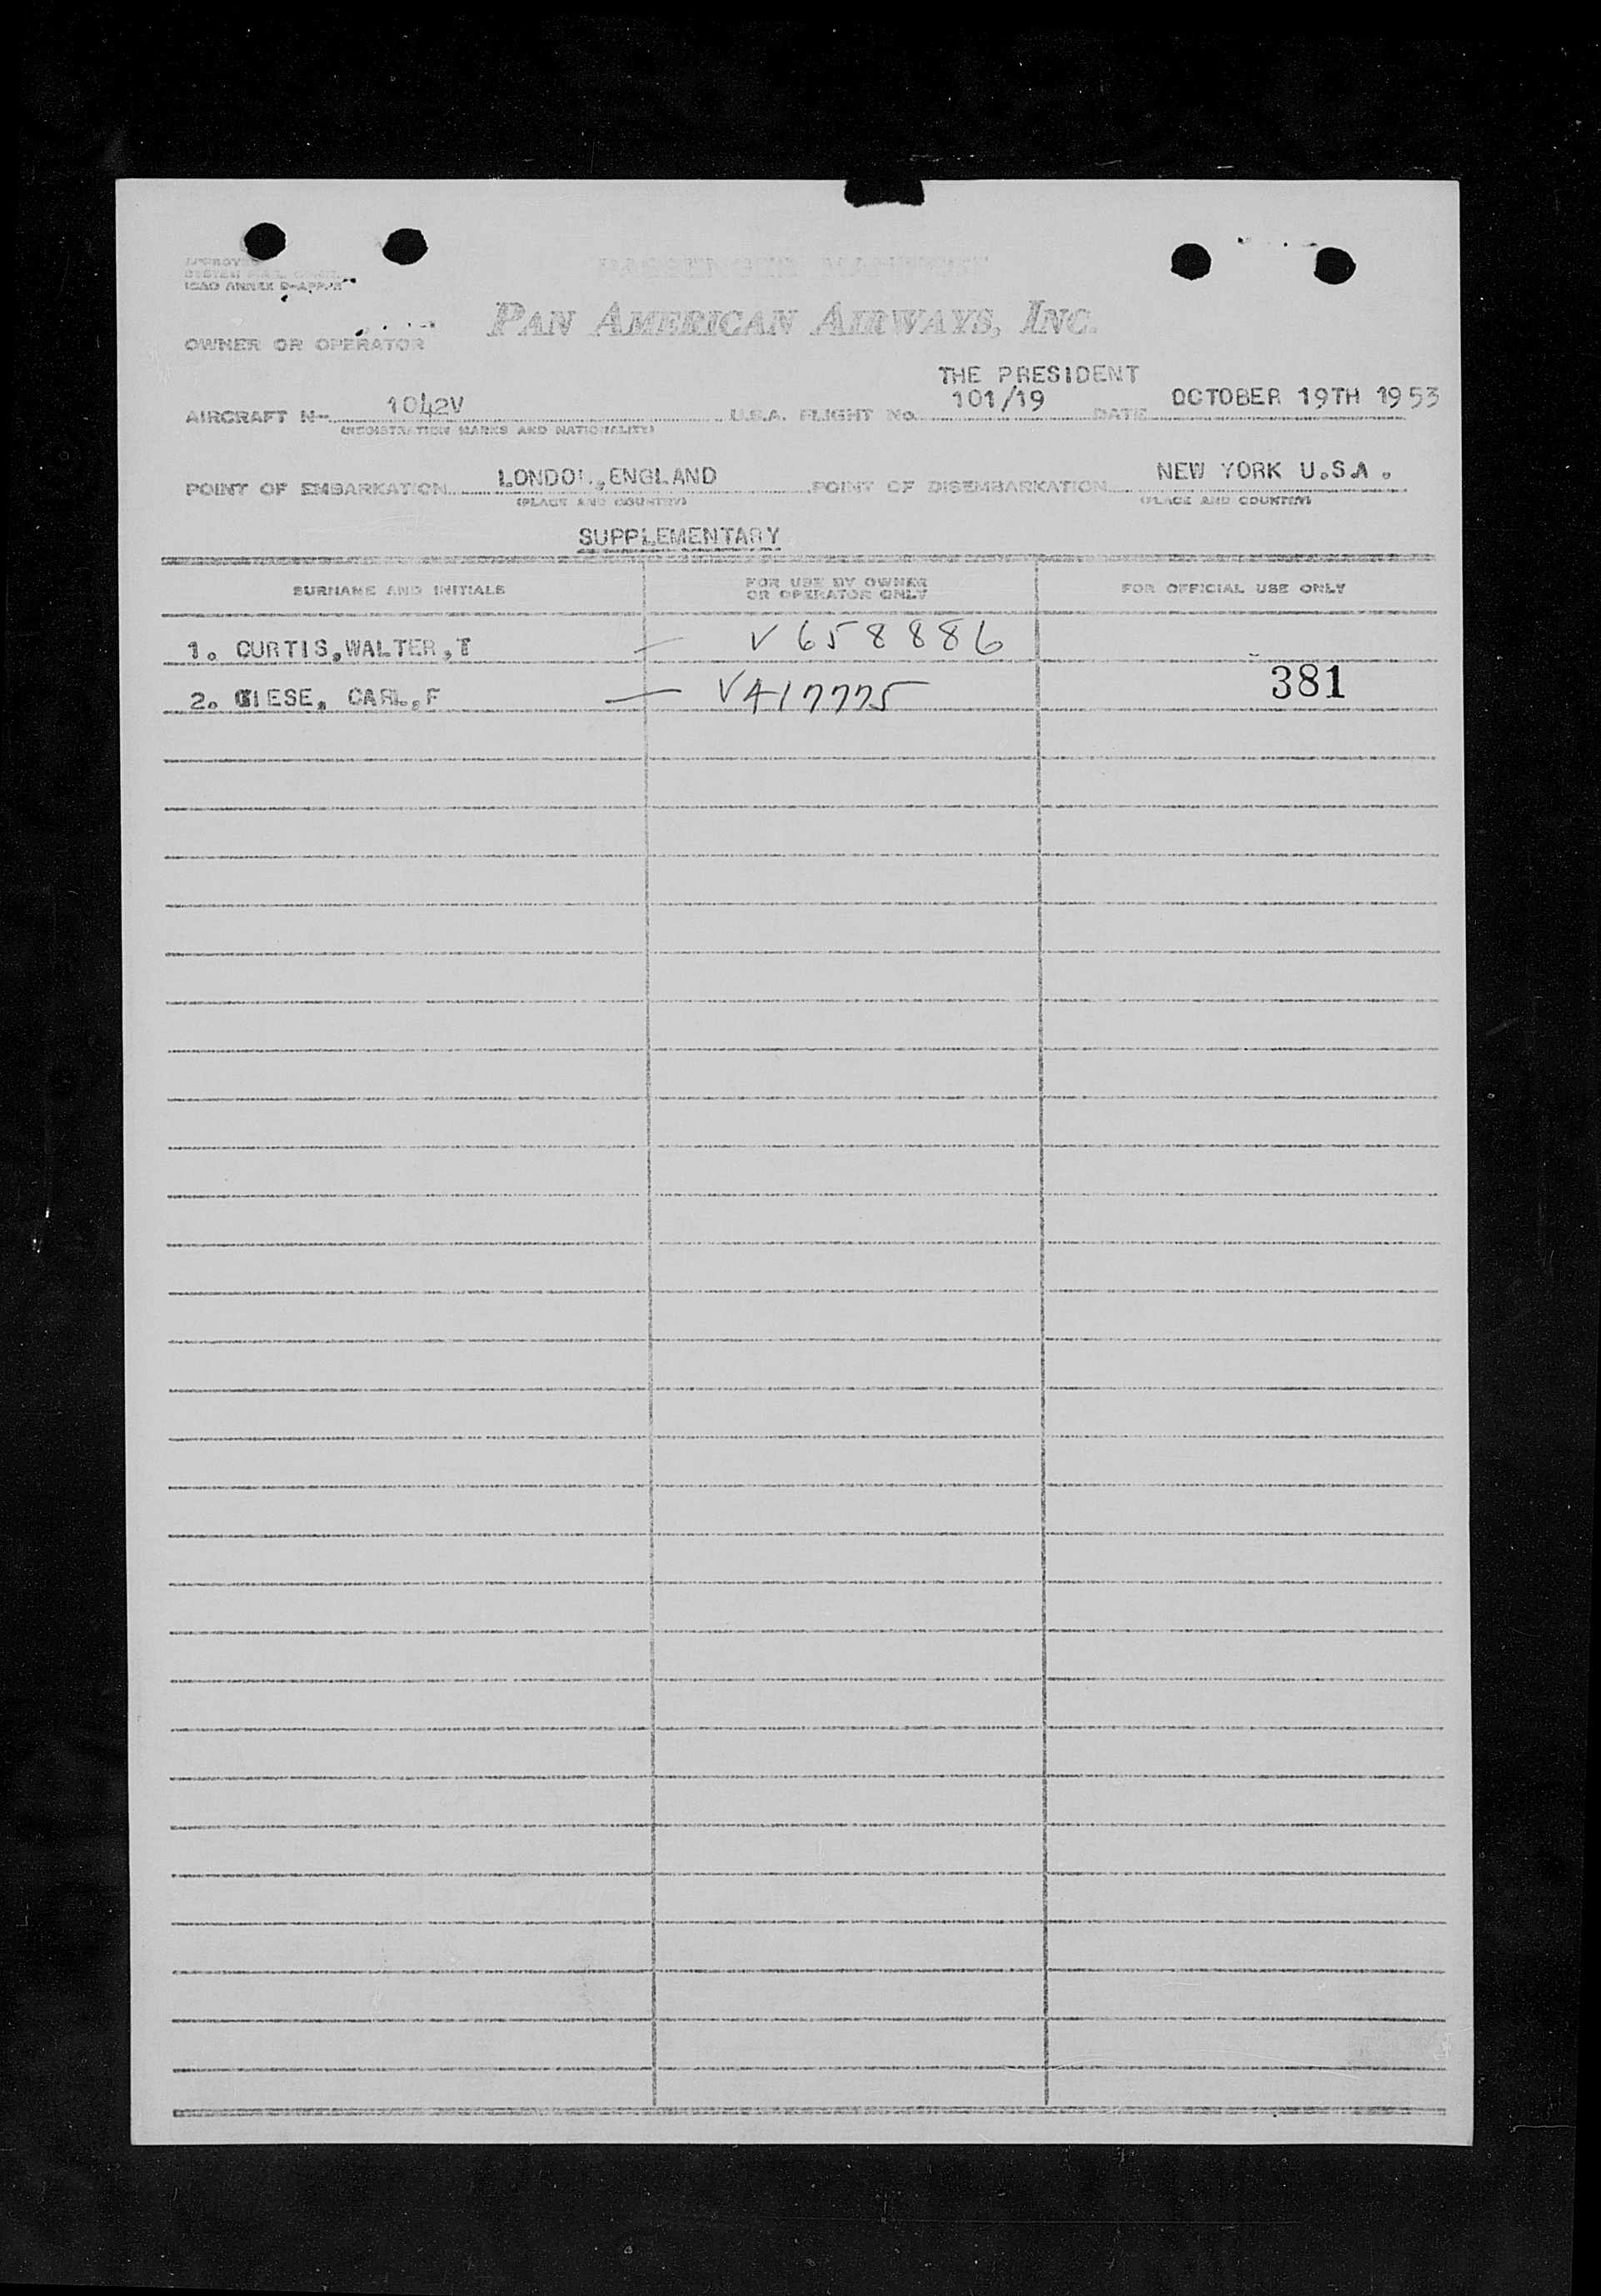 PASSENGER MANIFEST
ICAO ANNEX 9-APP/
PAN AMERICAN AIRWAYS, INC.
OWNER OR OPERATOR
THE PRESIDENT
AIRCRAFT N- 1042V U.S.A. FLIGHT No. 101/19 DATE OCTOBER 19TH 1953
(REGISTRATION MARKS AND NATIONALITY)
POINT OF EMBARKATION LONDON, ENGLAND POINT OF DISEMBARKATION NEW YORK U.S.A.
(PLACE AND COUNTRY) (PLACE AND COUNTRY)
SUPPLEMENTARY
SURNAME AND INITIALS FOR USE BY OWNER OR OPERATOR ONLY FOR OFFICIAL USE ONLY
1. CURTIS,WALTER,T — V658886
2. GIESE, CARL,F — VA17775 381